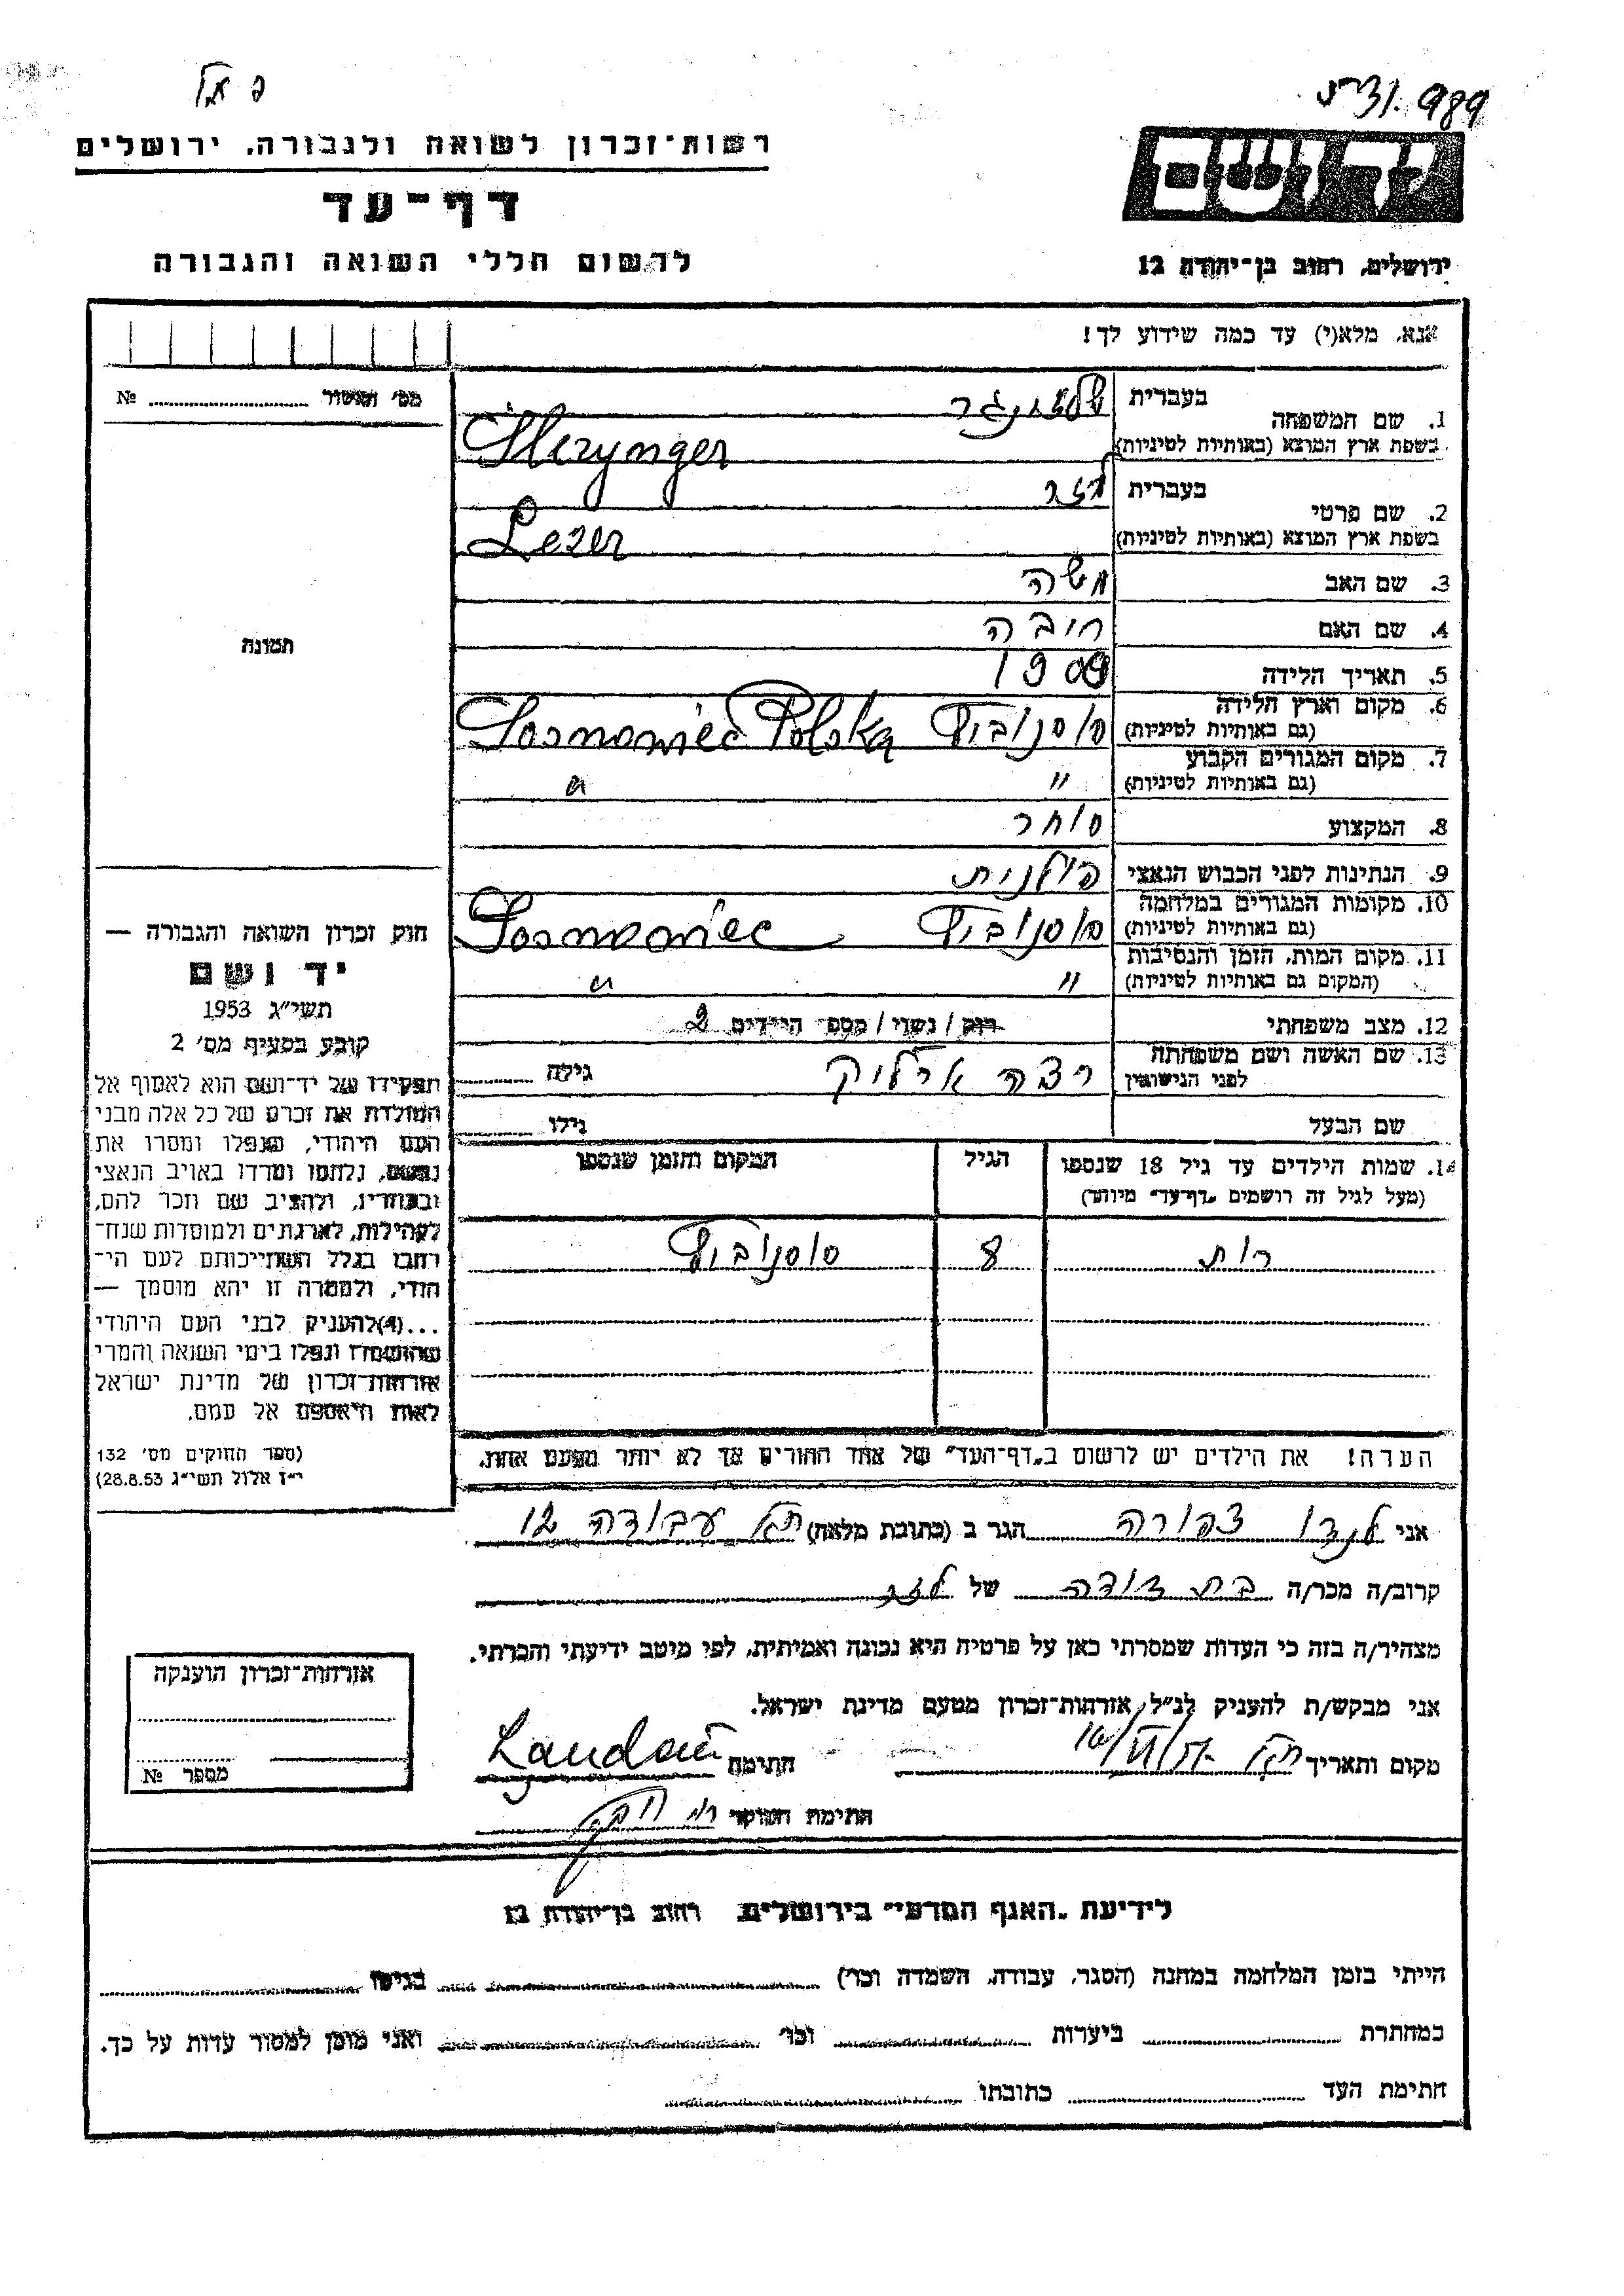 989
רשות־זכרון לשואה ולגבורה, ירושלים
דף־עד
לרשום חללי השואה והגבורה
ירושלים, רחוב בן־יהודה 12
אנא, מלא(י) עד כמה שידוע לך!
מס' ואשור №
1. שם המשפחה
בעברית
בשפת ארץ המוצא (באותיות לטיניות)
Slezynger
2. שם פרטי
בעברית לזר
בשפת ארץ המוצא (באותיות לטיניות) Lezer
3. שם האב משה
4. שם האם
5. תאריך הלידה 1909
6. מקום וארץ הלידה
(גם באותיות לטיניות) סוסנוביץ Sosnowiec Polska
7. מקום המגורים הקבוע
(גם באותיות לטיניות) " "
8. המקצוע סוחר
9. הנתינות לפני הכבוש הנאצי פולנית
10. מקומות המגורים במלחמה
(גם באותיות לטיניות) סוסנוביץ Sosnowiec
11. מקום המות, הזמן והנסיבות
(המקום גם באותיות לטיניות) " "
12. מצב משפחתי רוק / נשוי / מספר הילדים 2
13. שם האשה ושם משפחתה
לפני הנישואין גילה
שם הבעל גילו
14. שמות הילדים עד גיל 18 שנספו
(מעל לגיל זה רושמים „דף־עד" מיוחד)
הגיל
המקום והזמן שנספו
רות 8 סוסנוביץ
הערה! את הילדים יש לרשום ב„דף־העד" של אחד ההורים אך לא יותר מפעם אחת.
תמונה
חוק זכרון השואה והגבורה —
יד ושם
תשי"ג 1953
קובע בסעיף מס' 2
תפקידו של יד־ושם הוא לאסוף אל
המולדת את זכרם של כל אלה מבני
העם היהודי, שנפלו ומסרו את
נפשם, נלחמו ומרדו באויב הנאצי
ובעוזריו, ולהציב שם וזכר להם,
לקהילות, לארגונים ולמוסדות שנח־
רבו בגלל השתייכותם לעם הי־
הודי, ולמטרה זו יהא מוסמך —
...(4) להעניק לבני העם היהודי
שהושמדו ונפלו בימי השואה והמרי
אזרחות־זכרון של מדינת ישראל
לאות היאספם אל עמם.
(ספר החוקים מס' 132
י"ז אלול תשי"ג 28.8.53)
אני לנדו צפורה הגר ב (כתובת מלאה) ת"א עבודה 12
קרוב/ה מכר/ה בת דודה של לזר
מצהיר/ה בזה כי העדות שמסרתי כאן על פרטיה היא נכונה ואמיתית, לפי מיטב ידיעתי והכרתי.
אני מבקש/ת להעניק לנ"ל אזרחות־זכרון מטעם מדינת ישראל.
מקום ותאריך חתימה Landau
חתימת הפוקד
אזרחות־זכרון הוענקה
מספר №
לידיעת „האגף המדעי" בירושלים, רחוב בן־יהודה 12
הייתי בזמן המלחמה במחנה (הסגר, עבודה, השמדה וכו') בגיטו
במחתרת ביערות וכו' ואני מוכן למסור עדות על כך.
חתימת העד כתובתו